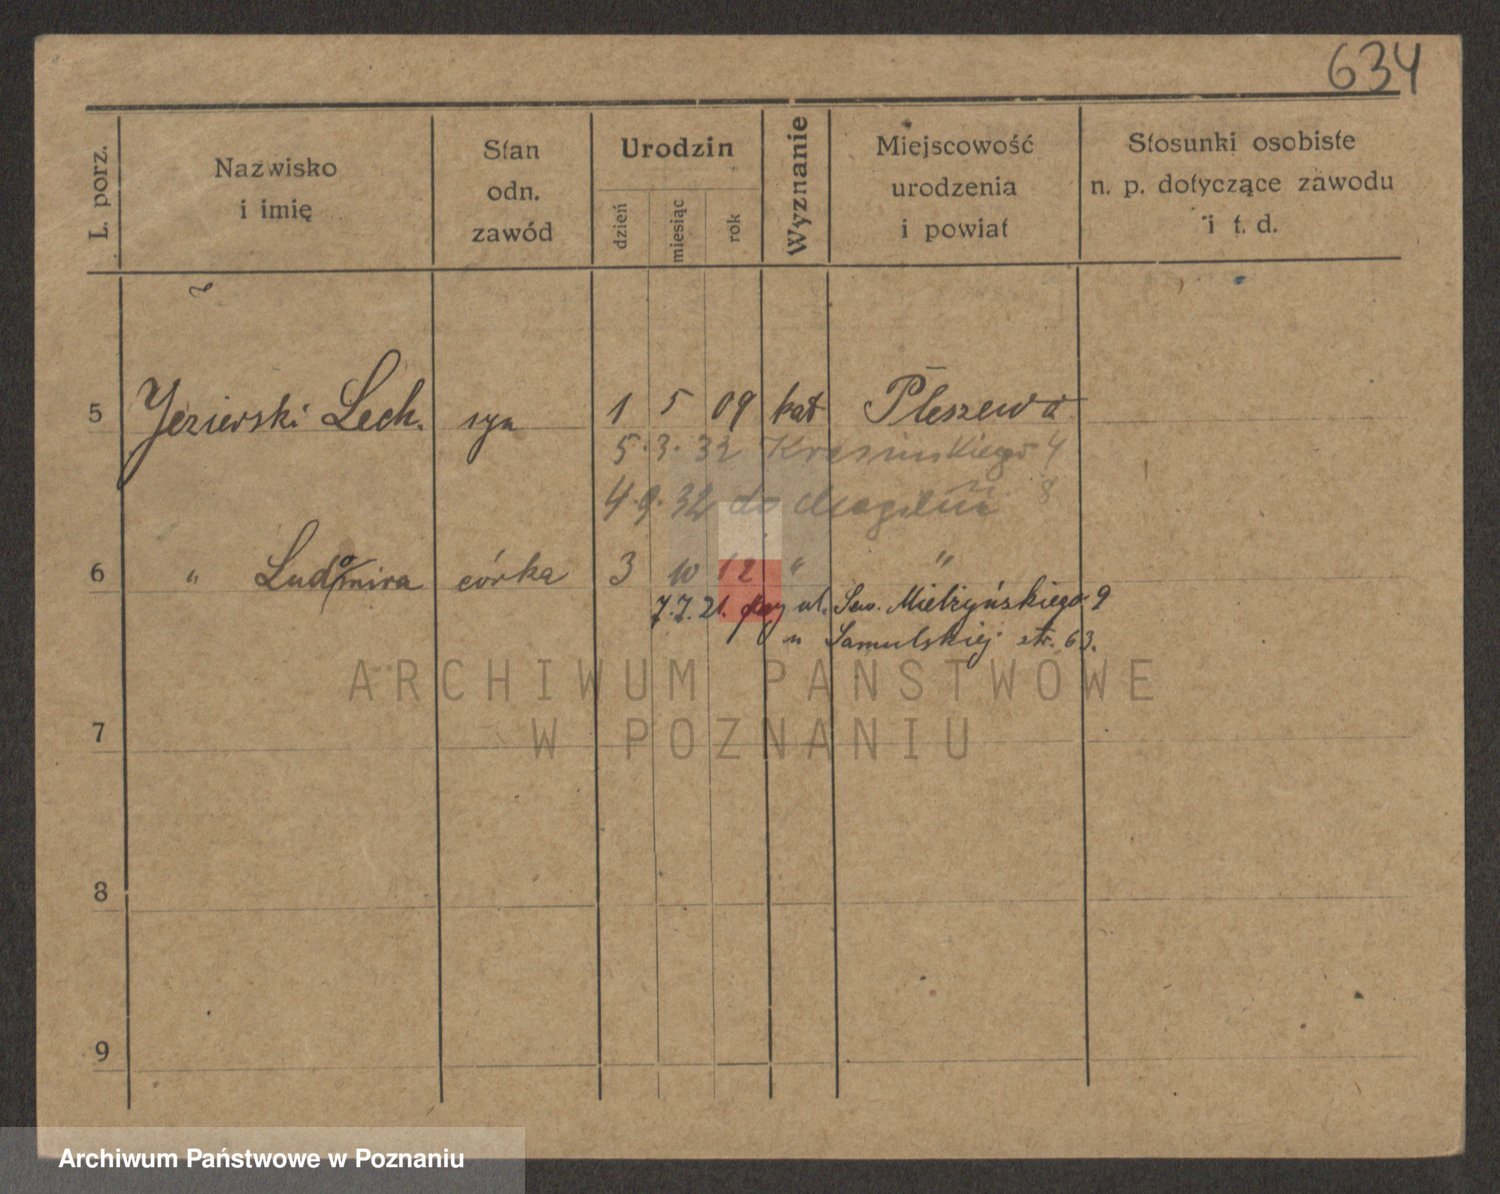 634
L. porz.
Nazwisko
i imię
Stan
odn.
zawód
Urodzin
dzień
miesiąc
rok
Wyznanie
Miejscowość
urodzenia
i powiat
Stosunki osobiste
n. p. dotyczące zawodu
i t. d.
5 Jezierski Lech. syn 1 5 09 kat Pleszewo
5.3.32 Krasińskiego 4
4.9.32 do 8
6 " Ludomira córka 3 10 12 " "
7.7.21. ul. Sew. Mielżyńskiego 9
" Samulskiej str. 63.
ARCHIWUM PAŃSTWOWE
W POZNANIU
7
8
9
Archiwum Państwowe w Poznaniu